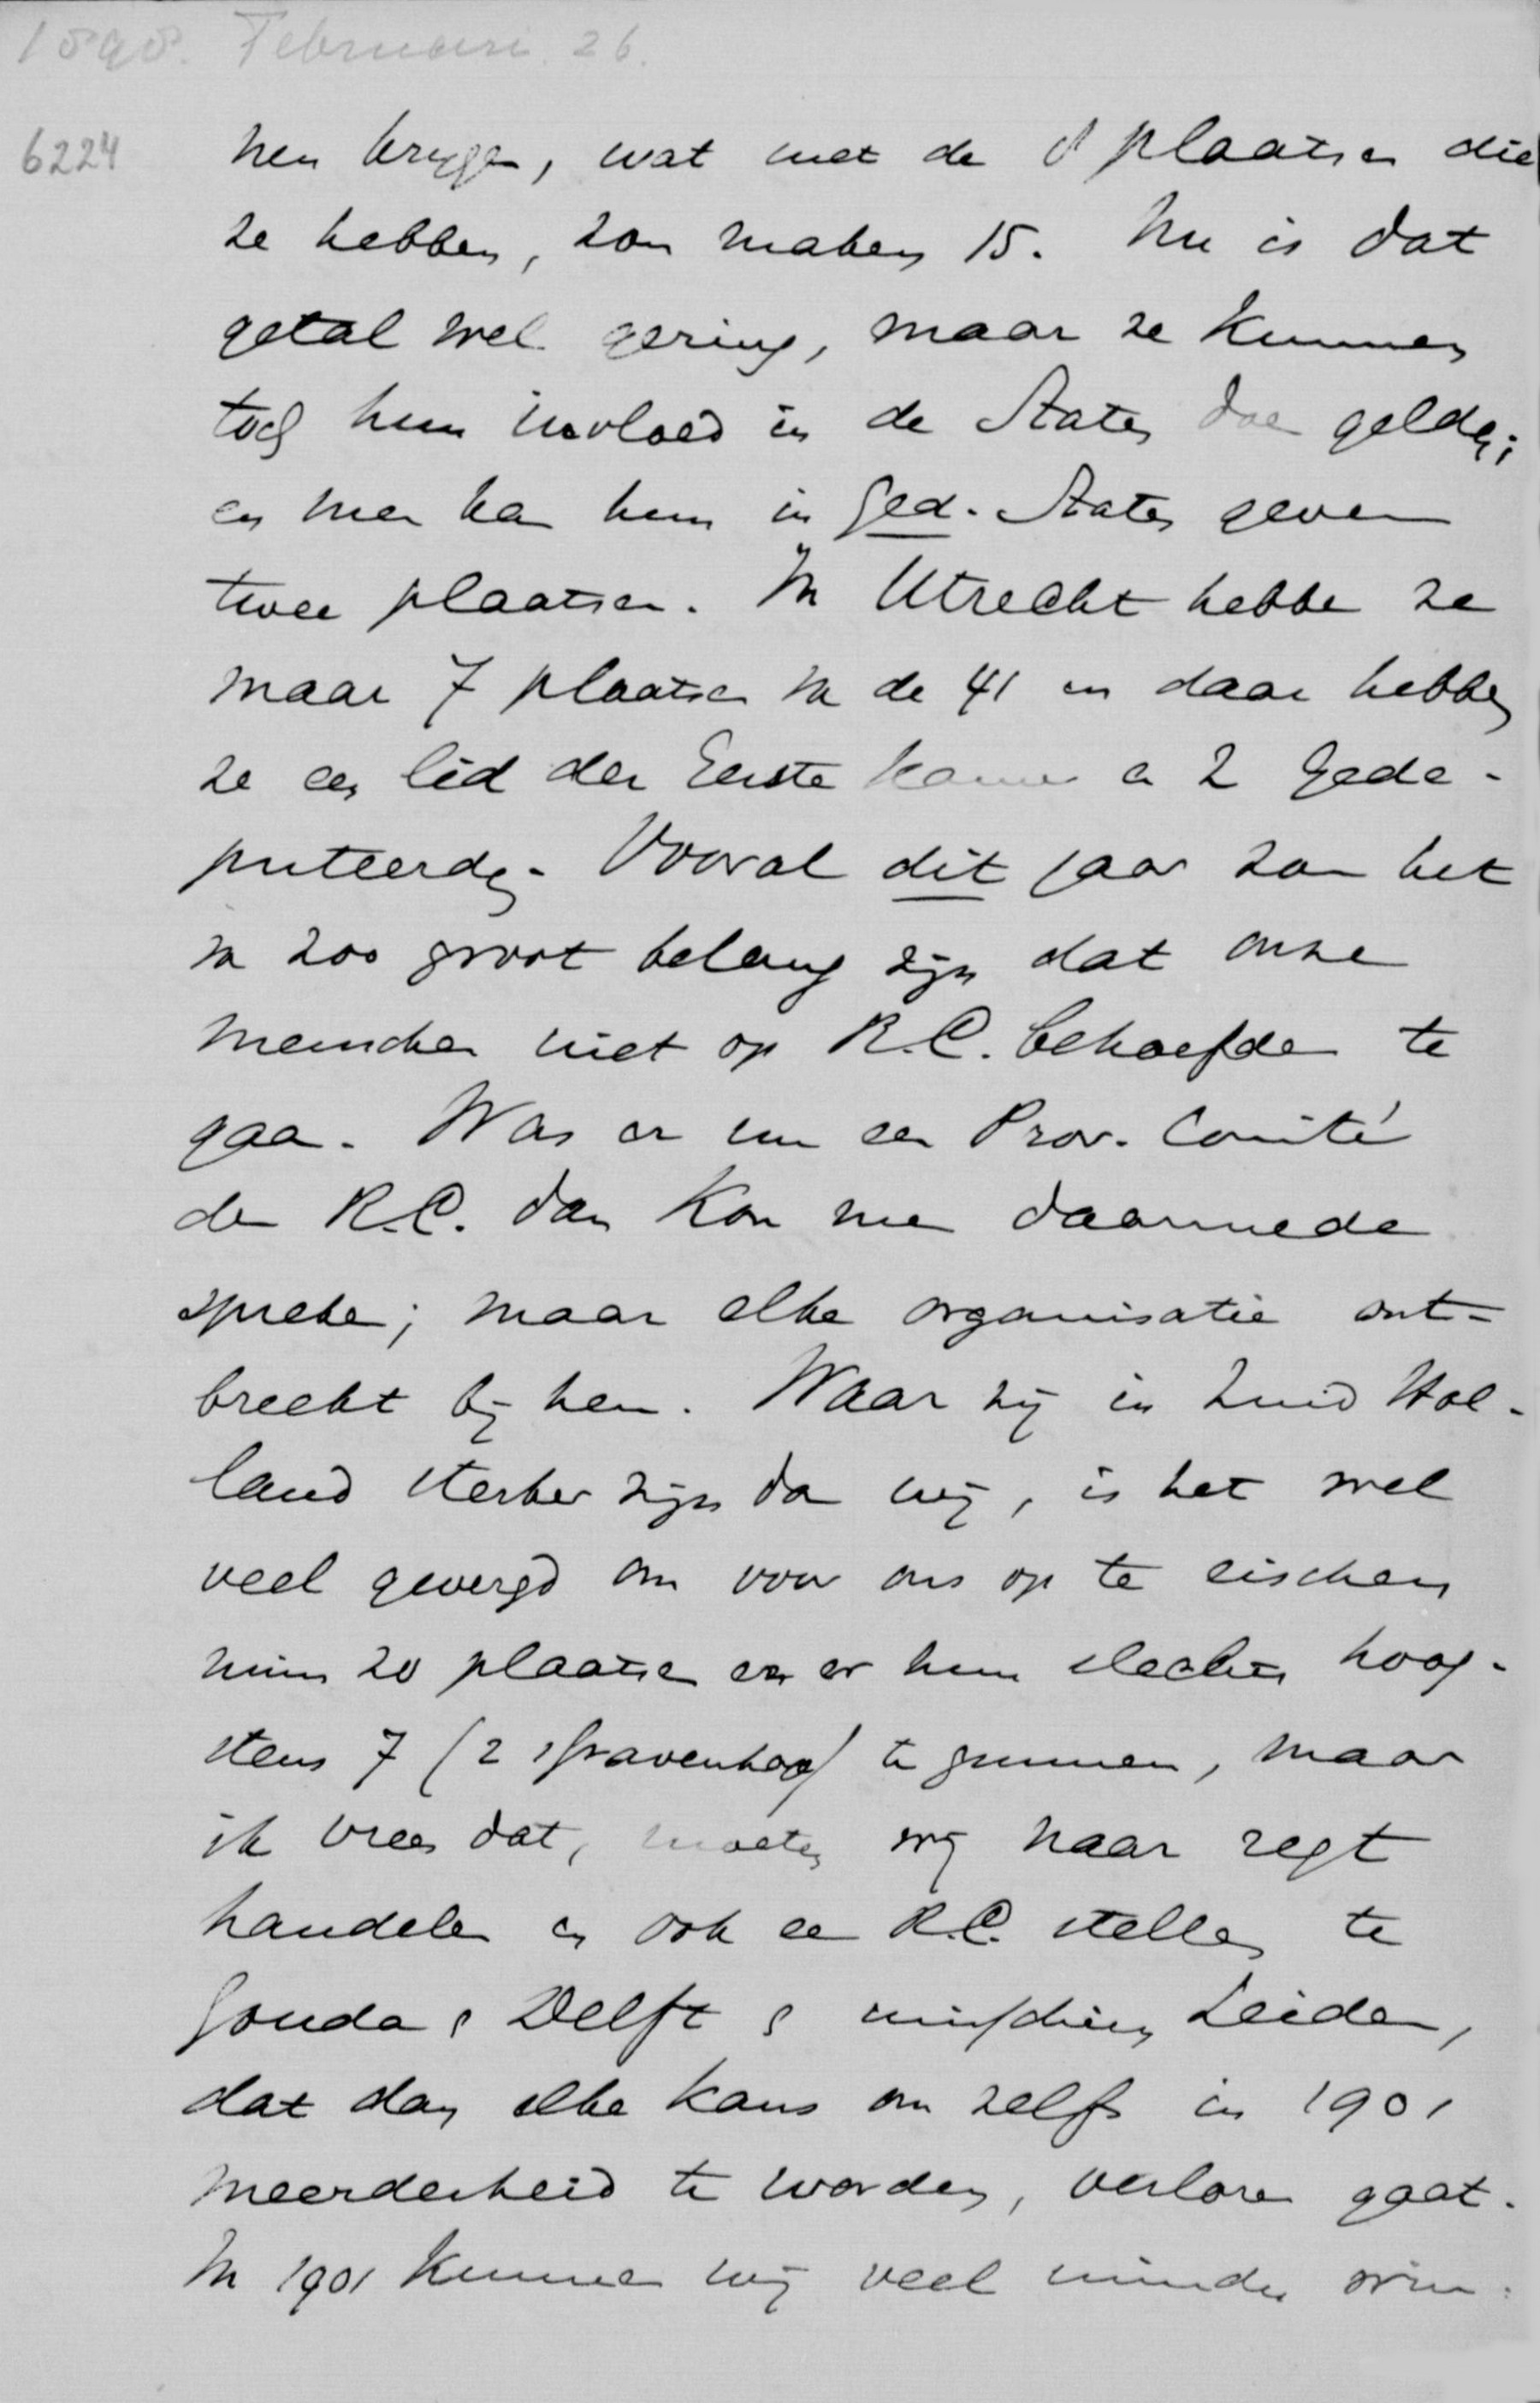 1898. Februari. 26.
6224
nen krijgen, wat met de 8 plaatsen die
ze hebben, zou maken 15. Nu is dat
getal wel gering, maar ze kunnen
toch hun invloed in de Staten doen gelden;
en men kan hun in Ged. Staten geven
twee plaatsen. In Utrecht hebben ze
maar 7 plaatsen in de 41 en daar hebben
ze een lid der Eerste Kamer en 2 Gede-
puteerden. Vooral dit jaar zou het
in zoo groot belang zijn dat onze
menschen niet op R.C. behoefden te
gaan. Was er nu een Prov. Comité
der R.C. dan kon men daarmede
spreken; maar elke organisatie ont-
breekt bij hen. Waar zij in Zuid Hol-
land sterker zijn dan wij, is het wel
veel gevergd om voor ons op te eischen
ruim 20 plaatsen en er hun slechts hoog-
stens 7 (2 's Gravenhage) te gunnen, maar
ik vrees dat, moeten wij naar regt
handelen en ook een R.C. stellen te
Gouda, Delft & misschien Leiden,
dat dan elke kans om zelfs in 1901
meerderheid te worden, verloren gaat.
In 1901 kunnen wij veel minder win-